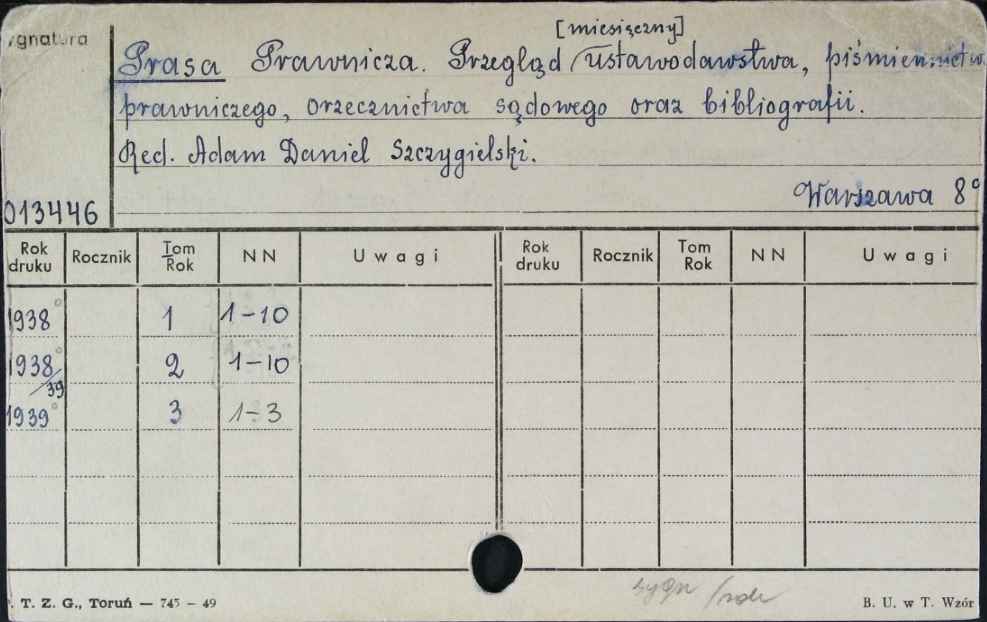 ygnatura
[miesięczny]
Prasa Prawnicza. Przegląd ustawodawstwa, piśmiennictw
prawniczego, orzecznictwa sądowego oraz bibliografii.
Red. Adam Daniel Szczygielski.
Warszawa 8°
013446
Rok druku Rocznik Tom Rok NN Uwagi Rok druku Rocznik Tom Rok NN Uwagi
1938° 1 1-10
1938°/39 2 1-10
1939° 3 1-3
sygn
. T. Z. G., Toruń — 745 - 49 B. U. w T. Wzór